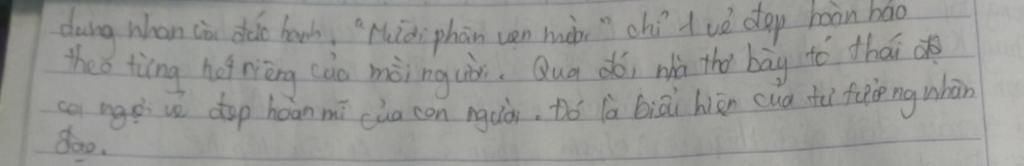 dung nhan lẫn đức hạnh. "Mười phân vẹn mười" chỉ 1 vẻ đẹp hoàn hảo
theo từng nét riêng của mỗi người. Qua đó, nhà thơ bày tỏ thái độ
ca ngợi vẻ đẹp hoàn mĩ của con người. Đó là biểu hiện của tư tưởng nhân
đạo.